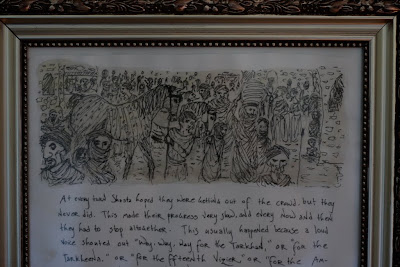 At every turn Shasta hoped they were getting out of the crowd, but they
never did. This made their progress very slow, and every now and then
they had to stop altogether. This usually happened because a loud
voice shouted out "Way, way, way for the Tarkhaan," or for the
Tarkheena," or "for the fifteenth Vizier," or "for the Am-